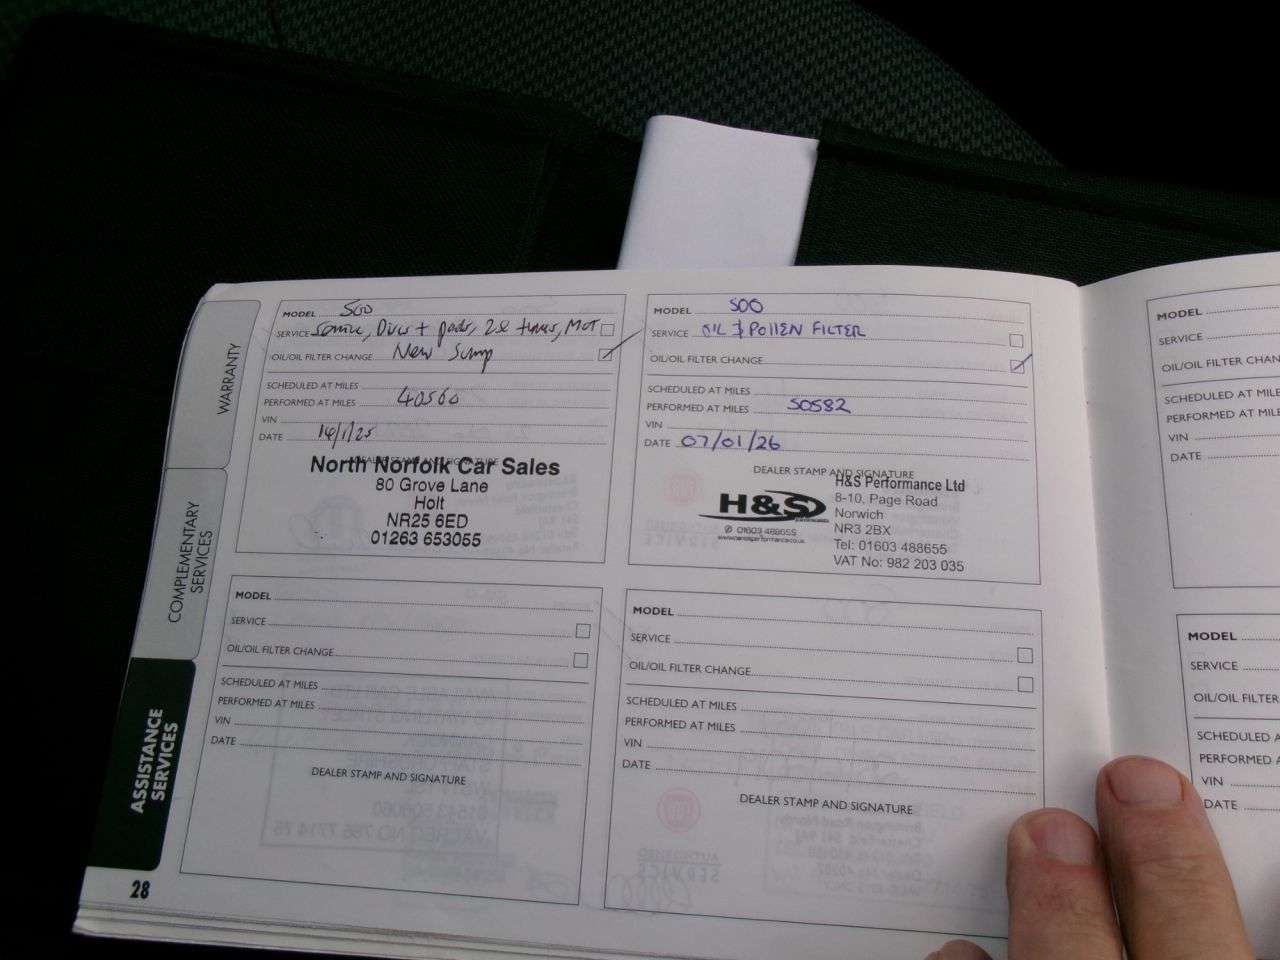 WARRANTY
COMPLEMENTARY
SERVICES
ASSISTANCE
SERVICES
28
MODEL 500
SERVICE service, Discs + pads, 2 tyres, MOT
OIL/OIL FILTER CHANGE New Sump
SCHEDULED AT MILES
PERFORMED AT MILES 40560
VIN
DATE 14/1/25
DEALER STAMP AND SIGNATURE
North Norfolk Car Sales
80 Grove Lane
Holt
NR25 6ED
01263 653055
MODEL 500
SERVICE OIL & POLLEN FILTER
OIL/OIL FILTER CHANGE
SCHEDULED AT MILES
PERFORMED AT MILES 50582
VIN
DATE 07/01/26
DEALER STAMP AND SIGNATURE
H&S
01603 488655
www.handsperformance.co.uk
H&S Performance Ltd
8-10, Page Road
Norwich
NR3 2BX
Tel: 01603 488655
VAT No: 982 203 035
MODEL
SERVICE
OIL/OIL FILTER CHANGE
SCHEDULED AT MILES
PERFORMED AT MILES
VIN
DATE
DEALER STAMP AND SIGNATURE
MODEL
SERVICE
OIL/OIL FILTER CHANGE
SCHEDULED AT MILES
PERFORMED AT MILES
VIN
DATE
DEALER STAMP AND SIGNATURE
MODEL
SERVICE
OIL/OIL FILTER CHAN
SCHEDULED AT MILE
PERFORMED AT MIL
VIN
DATE
MODEL
SERVICE
OIL/OIL FILTER
SCHEDULED A
PERFORMED A
VIN
DATE